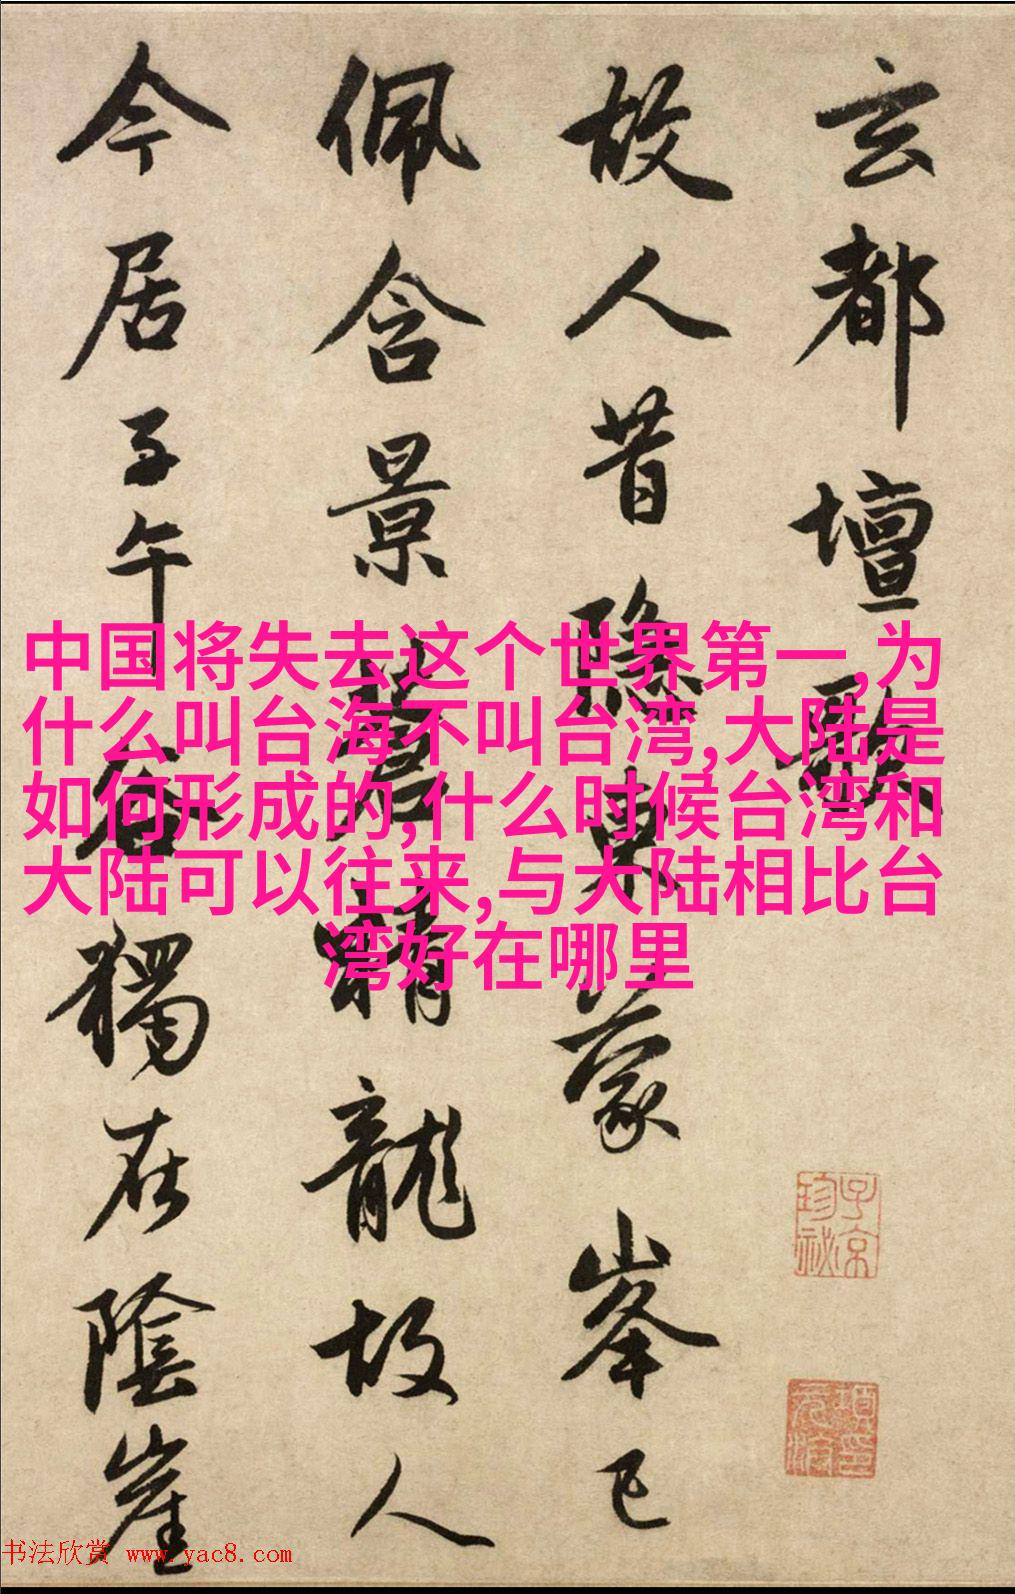 玄都壇歌
故人昔隱東蒙峯已
佩含景蒼精龍故人
今居子午谷獨在陰崖
中国将失去这个世界第一,为
什么叫台海不叫台湾,大陆是
如何形成的,什么时候台湾和
大陆可以往来,与大陆相比台
湾好在哪里
子京
珍秘
项元汴印
书法欣赏 www.yac8.com